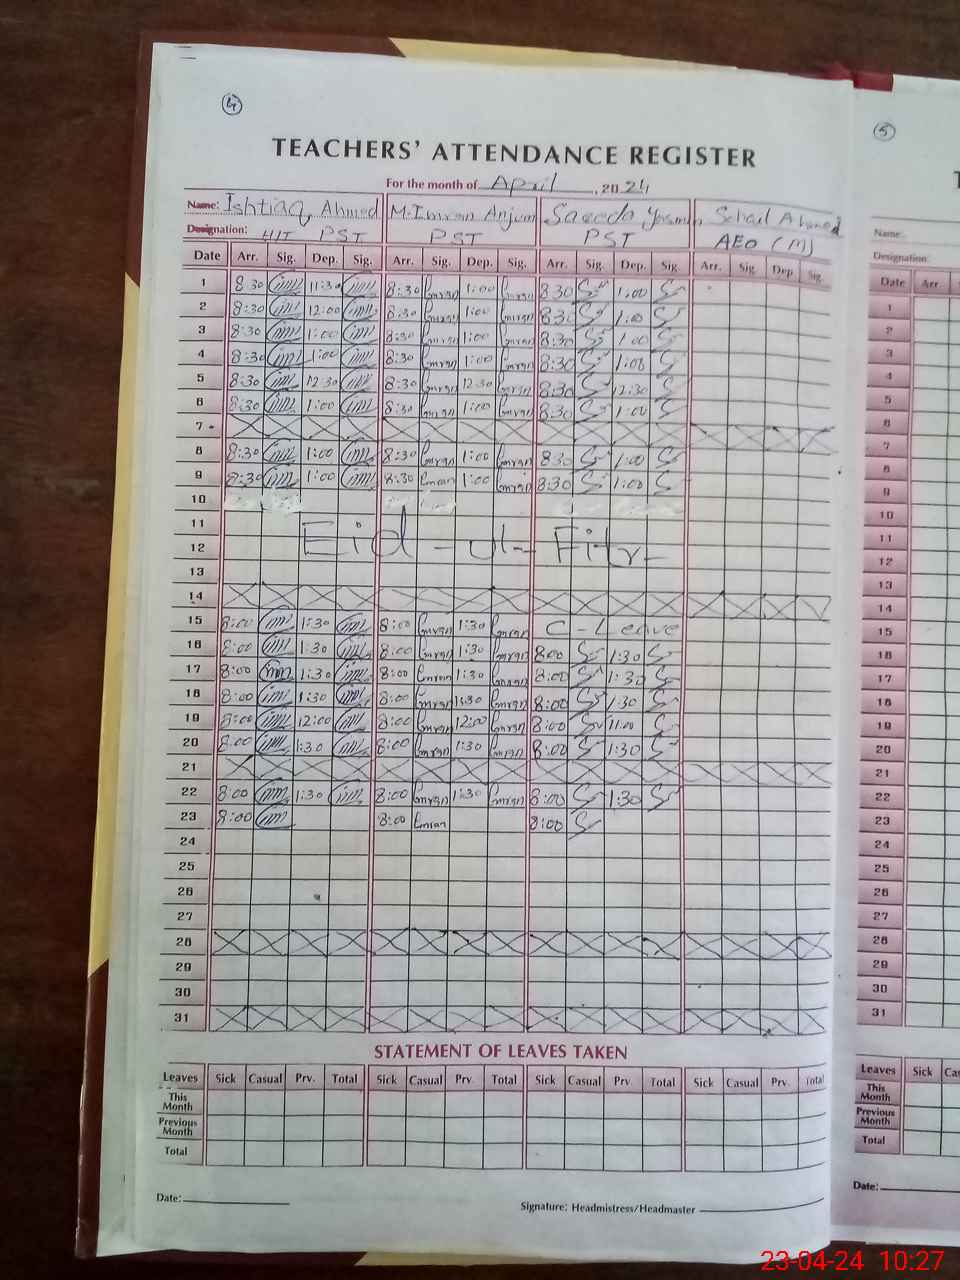 4
5
TEACHERS' ATTENDANCE REGISTER
For the month of April, 2024
Name: Ishtiaq Ahmed M.Imran Anjum Saeeda Yasmin Sohail Ahmed
Designation: HIT PST PST PST AEO (M)
Date Arr. Sig. Dep. Sig. Arr. Sig. Dep. Sig. Arr. Sig. Dep. Sig. Arr. Sig. Dep. Sig.
1 8:30 11:30 8:30 Imran 1:00 Imran 8:30 1:00
2 8:30 12:00 8:30 Imran 1:00 Imran 8:30 1:00
3 8:30 1:00 8:30 Imran 1:00 Imran 8:30 1:00
4 8:30 1:00 8:30 Imran 1:00 Imran 8:30 1:00
5 8:30 12:30 8:30 Imran 12:30 Imran 8:30 12:30
6 8:30 1:00 8:30 Imran 1:00 Imran 8:30 1:00
7
8 8:30 1:00 8:30 Imran 1:00 Imran 8:30 1:00
9 8:30 1:00 8:30 Imran 1:00 Imran 8:30 1:00
10
11
12 Eid-ul-Fitr
13
14
15 8:00 1:30 8:00 Imran 1:30 Imran C-Leave
16 8:00 1:30 8:00 Imran 1:30 Imran 8:00 1:30
17 8:00 1:30 8:00 Imran 1:30 Imran 8:00 1:30
18 8:00 1:30 8:00 Imran 1:30 Imran 8:00 1:30
19 8:00 12:00 8:00 Imran 12:00 Imran 8:00 11:00
20 8:00 1:30 8:00 Imran 1:30 Imran 8:00 1:30
21
22 8:00 1:30 8:00 Imran 1:30 Imran 8:00 1:30
23 8:00 8:00 Imran 8:00
24
25
26
27
28
29
30
31
STATEMENT OF LEAVES TAKEN
Leaves Sick Casual Prv. Total Sick Casual Prv. Total Sick Casual Prv. Total Sick Casual Prv. Total
This Month
Previous Month
Total
Date:
Signature: Headmistress/Headmaster
Name:
Designation:
Date Arr
1
2
3
4
5
6
7
8
9
10
11
12
13
14
15
16
17
18
19
20
21
22
23
24
25
26
27
28
29
30
31
Leaves Sick
This Month
Previous Month
Total
Date:
23-04-24 10:27